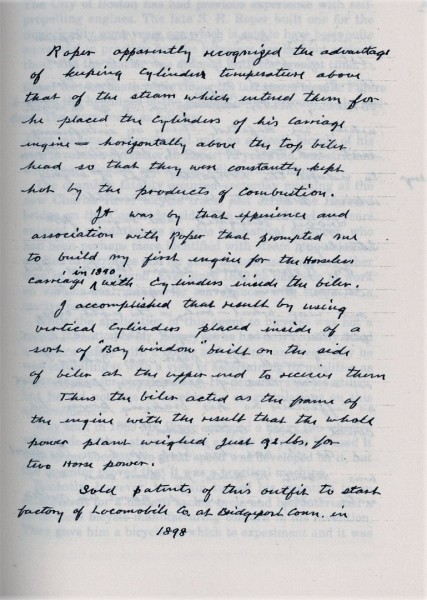 Roper apparently recognized the advantage
of keeping Cylinders temperature above
that of the steam which entered them for
he placed the Cylinders of his carriage
engine = horizontally above the top biler
head so that they were constantly kept
hot by the products of combustion.
It was by that experience and
association with Roper that prompted me
to build my first engine for the Horseless
carriage in 1890, with Cylinders inside the biler.
I accomplished that result by using
virtical Cylinders placed inside of a
sort of "Bay window" built on the side
of biler at the upper end to receive them
Thus the biler acted as the frame of
the engine with the result that the whole
power plant weighed just 92 lbs. for
two Horse power.
Sold patents of this outfit to start
factory of Locomobile Co. at Bridgeport Conn. in
1898